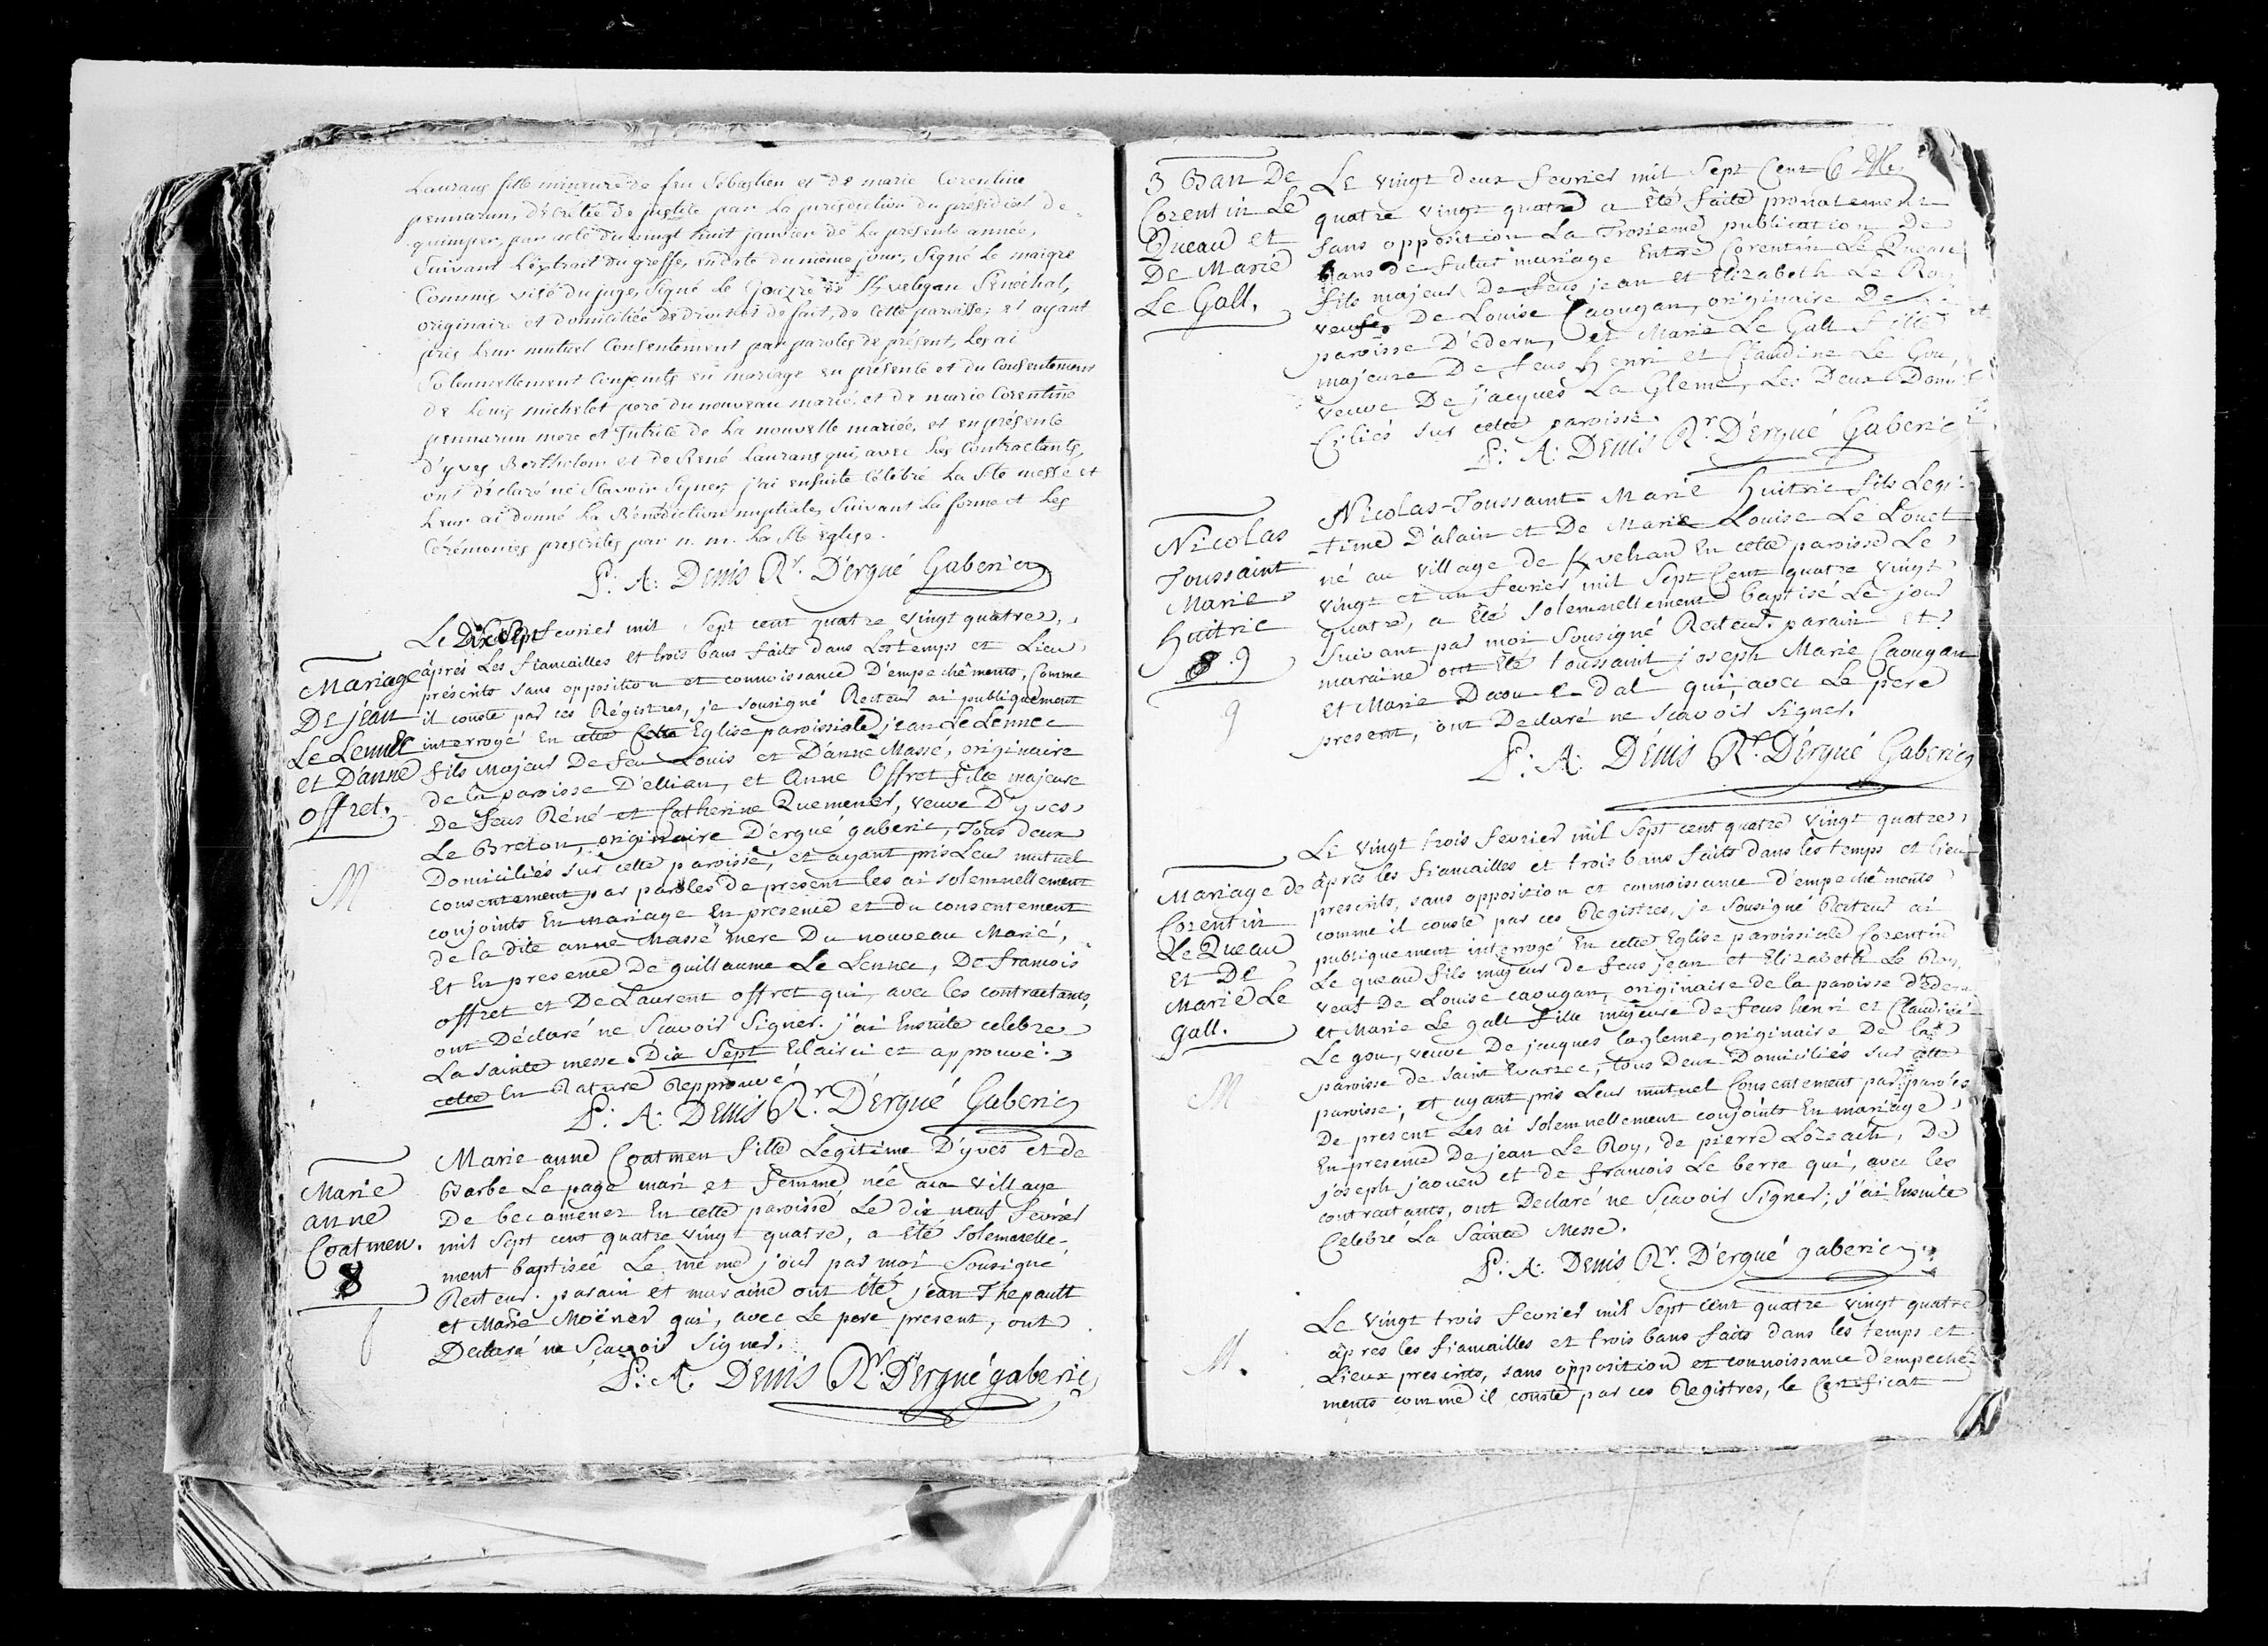 Laurans fille mineure de feu Sébastien et de marie Corentine
pennarun, décrétée de justice par la jurisdiction du présidial de
quimper, par acte du vingt huit janvier de la présente année,
Suivant l'extrait du greffe, en date du même jour, Signé Le maigre
Commis, visé du juge, Signé Le Sénéchal,
originaire et domiciliée de droit et de fait, de cette paroisse; et ayant
pris leur mutuel Consentement par paroles de présent, Les ai
Solennellement Conjoints en mariage en présence et du Consentement
de Louis michelet pere du nouveau marié, et de marie Corentine
pennarun mere et Tutrice de la nouvelle mariée, et en présence
d'yves Bertholom et de René Laurans qui, avec Les Contractants,
ont déclaré ne Scavoir Signer, j'ai ensuite Célébré La Ste messe et
Leur ai donné La Bénédiction nuptiale, Suivant La forme et Les
Cérémonies prescrites par n. m. La Ste église.
P: A: Denis Rr. D'ergué Gaberic
Mariage
De jean
Le Lennec
et D'anne
offret.
M
Le Dix Sept fevrier mil Sept cent quatre vingt quatre,
âprés Les fiancailles et trois bans faits dans Les temps et Lieu
préscrits sans opposition et connoissance D'empechêments, Comme
il conste par ces Régistres, je Sousigné Recteur ai publiquement
interrogé En cette Cette Eglise paroissiale jean Le Lennec
fils Majeur De feu Louis et D'anne Massé, originaire
de la paroisse D'ellian, et Anne Offret fille majeure
De feus Réné et Catherine Quemener, veuve D'yves
Le Breton, originaire D'ergué gaberic, Tous deux
Domiciliés sur cette paroisse, et ayant pris Leur mutuel
consentement par paroles de present les ai solemnellement
conjoints En mariage En presence et du consentement
de la dite anne Massé mere Du nouveau Marié,
Et En presence De guillaume Le Lennec, De francois
offret et De Laurent offret qui, avec les contractants,
ont Déclaré ne Scavoir Signer. j'ai Ensuite celebre
La sainte messe. Dix Sept Eclairci et approuvé.
cette En Rature Repprouvé
P: A: Denis Rr. D'ergué Gaberic
Marie
anne
Coatmen.
8
Marie anne Coatmen fille Legitime D'yves et de
Barbe Le page mari et femme née au village
De becamenez En cette paroisse Le dix neuf fevrier
mil Sept cent quatre vingt quatre, a Eté Solemnelle-
ment baptisée Le même jour par moi Sousigné
Recteur. parain et maraine ont été jean Thepault
et Marie Moënner qui, avec Le pere present, ont
Declaré ne Sçavoir Signer.
P: A: Denis Rr. D'ergué gaberic
3 Ban De
Corentin Le
Queau et
De Marie
Le Gall.
Le vingt deux fevrier mil Sept Cent
quatre vingt quatre a Eté faite pronalement
Sans opposition La Troisieme publication De
bans de futur mariage Entre Corentin Le Queau
fils majeur De feus jean et Elizabeth Le Roy
veuf De Louise Caougan, originaire De
paroisse D'édern, et Marie Le Gall fille
majeure De feus Henri et Claudine Le Gou,
veuve De jacques La Gleme, Les Deux Domi
ciliés sur cette paroisse.
P: A: Denis Rr. D'érgué Gaberic
Nicolas
Toussaint
Marie
Huitric
8. 9
9
Nicolas-Toussaint Marie Huitric fils Legi-
time D'alain et De Marie Louise Le Louet
né au village de Kvelian En cette paroisse Le
vingt et un fevrier mil Sept Cent quatre vingt
quatre, a Eté Solemnellement baptisé Le jour
Suivant par moi Sousigné Recteur. parain et
maraine ont Eté toussaint joseph Marie Caougan
et Marie Daou e Dal qui, avec Le pere
present, ont Declaré ne Scavoir Signer.
P: A: Dénis Rr. D'érgué Gaberic
Mariage de
Corentin
Le Queau
Et De
Marie Le
gall.
M
Le vingt trois fevrier mil Sept cent quatre vingt quatre,
âprés les fiancailles et trois bans faits dans les temps et lieu
prescrits, sans opposition et connoissance d'empechêments
comme il conste par ces Registres, je Sousigné Recteur ai
publiquement interrogé En cette Eglise paroissiale Corentin
Le queau fils majeur de feus jean et Elizabeth Le Roy,
veuf De Louise caougan, originaire de la paroisse d'edern
et Marie Le gall fille majeure de feus henri et Claudine
Le gou, veuve De jacques lagleme, originaire De la
paroisse de Saint Evarzec, tous Deux Domiciliés sur cette
paroisse; et ayant pris Leur mutuel Consentement par paroles
De present Les ai solemnellement conjoints En mariage
En presence De jean Le Roy, de pierre Lozeach, De
joseph jaouen et de francois Le berre qui, avec les
contractants, ont Declaré ne Scavoir Signer; j'ai Ensuite
Celebré La Sainte Messe.
P: A: Denis Rr. D'ergué gaberic
M.
Le vingt trois fevrier mil Sept cent quatre vingt quatre
âpres les fiancailles et trois bans faits dans les temps et
Lieux prescrits, sans opposition et connoissance d'empeche-
ments comme il conste par ces Registres, le Certificat